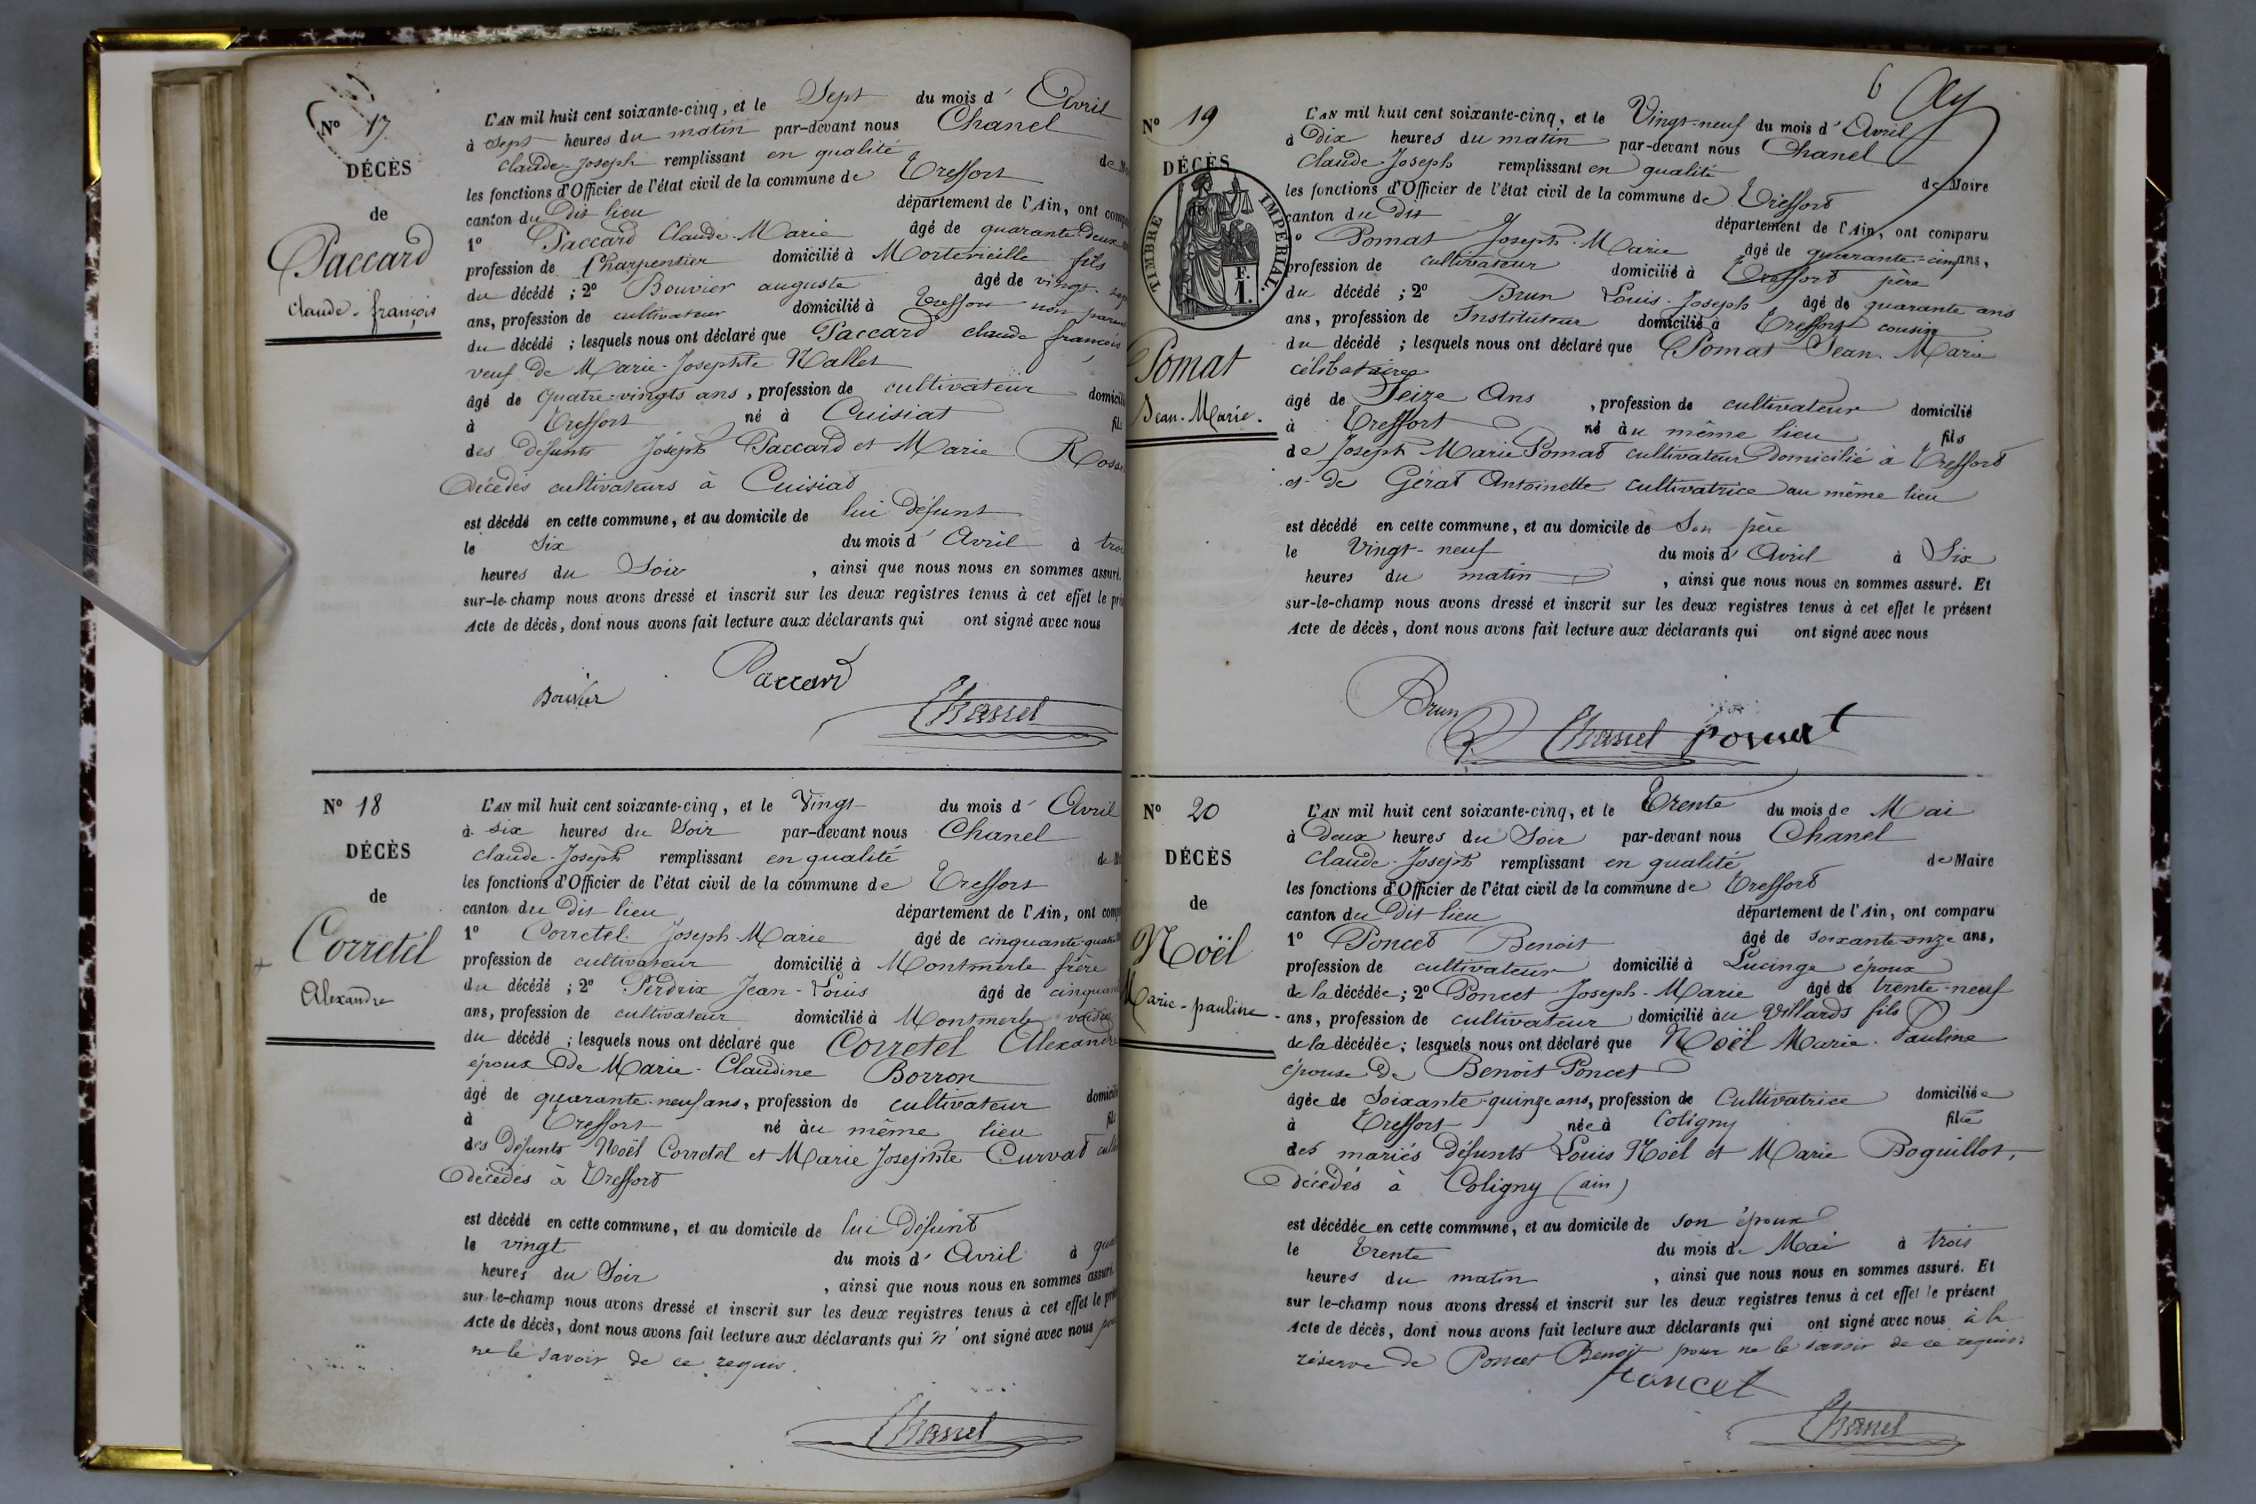 N° 17
DÉCÈS
de
Paccard
Claude-françois
L'AN mil huit cent soixante-cinq, et le Sept du mois d' Avril
à Sept heures du matin par-devant nous Chanel
Claude-Joseph remplissant en qualité de
les fonctions d'Officier de l'état civil de la commune de Treffort
canton du Dit lieu département de l'Ain, ont
1° Paccard Claude-Marie âgé de quarante-deux
profession de Charpentier domicilié à fils
du décédé ; 2° Bouvier auguste âgé de vingt-
ans, profession de cultivateur domicilié à Treffort non
du décédé ; lesquels nous ont déclaré que Paccard claude françois
veuf de Marie-Josephte Nallet
âgé de quatre-vingts ans, profession de cultivateur
à Treffort né à Cuisiat
des Défunts Joseph Paccard et Marie
Décédés cultivateurs à Cuisiat
est décédé en cette commune, et au domicile de lui Défunt
le Six du mois d' Avril à
heures du Soir , ainsi que nous nous en sommes assuré.
sur-le-champ nous avons dressé et inscrit sur les deux registres tenus à cet effet le
Acte de décès, dont nous avons fait lecture aux déclarants qui ont signé avec nous
Paccard
Bouvier
Chanel
N° 18
DÉCÈS
de
Corretel
Alexandre
L'AN mil huit cent soixante-cinq, et le Vingt du mois d' Avril
à six heures du Soir par-devant nous Chanel
Claude-Joseph remplissant en qualité de
les fonctions d'Officier de l'état civil de la commune de Treffort
canton du Dit lieu département de l'Ain, ont
1° Corretel Joseph-Marie âgé de cinquante-quatre
profession de cultivateur domicilié à Montmerle frère
du décédé ; 2° Perdrix Jean-Louis âgé de
ans, profession de cultivateur domicilié à Montmerle voisin
du décédé ; lesquels nous ont déclaré que Corretel Alexandre
époux de Marie-Claudine Borron
âgé de quarante-neuf ans, profession de cultivateur
à Treffort né au même lieu
des Défunts Noël Corretel et Marie Josephte Curvat
Décédés à Treffort
est décédé en cette commune, et au domicile de lui Défunt
le vingt du mois d' Avril à
heures du Soir , ainsi que nous nous en sommes assuré.
sur-le-champ nous avons dressé et inscrit sur les deux registres tenus à cet effet le
Acte de décès, dont nous avons fait lecture aux déclarants qui n'ont signé avec nous
ne le savoir de ce requis.
Chanel
6
N° 19
DÉCÈS
de
TIMBRE IMPERIAL.
F. 1.
Pomat
Jean-Marie.
L'AN mil huit cent soixante-cinq, et le Vingt-neuf du mois d' Avril
à Dix heures du matin par-devant nous Chanel
Claude-Joseph remplissant en qualité de Maire
les fonctions d'Officier de l'état civil de la commune de Treffort
canton du Dit département de l'Ain, ont comparu
1° Pomat Joseph-Marie âgé de quarante-cinq ans,
profession de cultivateur domicilié à Treffort père
du décédé ; 2° Brun Louis-Joseph âgé de quarante ans
ans, profession de Instituteur domicilié à Treffort cousin
du décédé ; lesquels nous ont déclaré que Pomat Jean-Marie
célibataire
âgé de Seize Ans , profession de cultivateur domicilié
à Treffort né au même lieu fils
de Joseph Marie Pomat cultivateur Domicilié à Treffort
et de Gérat Antoinette cultivatrice au même lieu
est décédé en cette commune, et au domicile de Son père
le Vingt-neuf du mois d' Avril à Six
heures du matin , ainsi que nous nous en sommes assuré. Et
sur-le-champ nous avons dressé et inscrit sur les deux registres tenus à cet effet le présent
Acte de décès, dont nous avons fait lecture aux déclarants qui ont signé avec nous
Brun Chanel Pomat
N° 20
DÉCÈS
de
Noël
Marie-pauline
L'AN mil huit cent soixante-cinq, et le Trente du mois de Mai
à Deux heures du Soir par-devant nous Chanel
Claude-Joseph remplissant en qualité de Maire
les fonctions d'Officier de l'état civil de la commune de Treffort
canton du Dit lieu département de l'Ain, ont comparu
1° Poncet Benoit âgé de soixante-onze ans,
profession de cultivateur domicilié à Lucinge époux
de la décédée ; 2° Poncet Joseph-Marie âgé de trente-neuf
ans, profession de cultivateur domicilié au Villards fils
de la décédée ; lesquels nous ont déclaré que Noël Marie-Pauline
épouse De Benoit Poncet
âgée de Soixante-quinze ans, profession de Cultivatrice domiciliée
à Treffort née à Coligny fille
des mariés Défunts Louis Noël et Marie Boguillot,
Décédés à Coligny (ain)
est décédée en cette commune, et au domicile de son époux
le Trente du mois de Mai à trois
heures du matin , ainsi que nous nous en sommes assuré. Et
sur le-champ nous avons dressé et inscrit sur les deux registres tenus à cet effet le présent
Acte de décès, dont nous avons fait lecture aux déclarants qui ont signé avec nous à la
réserve de Poncet Benoit pour ne le savoir de ce requis.
Poncet
Chanel